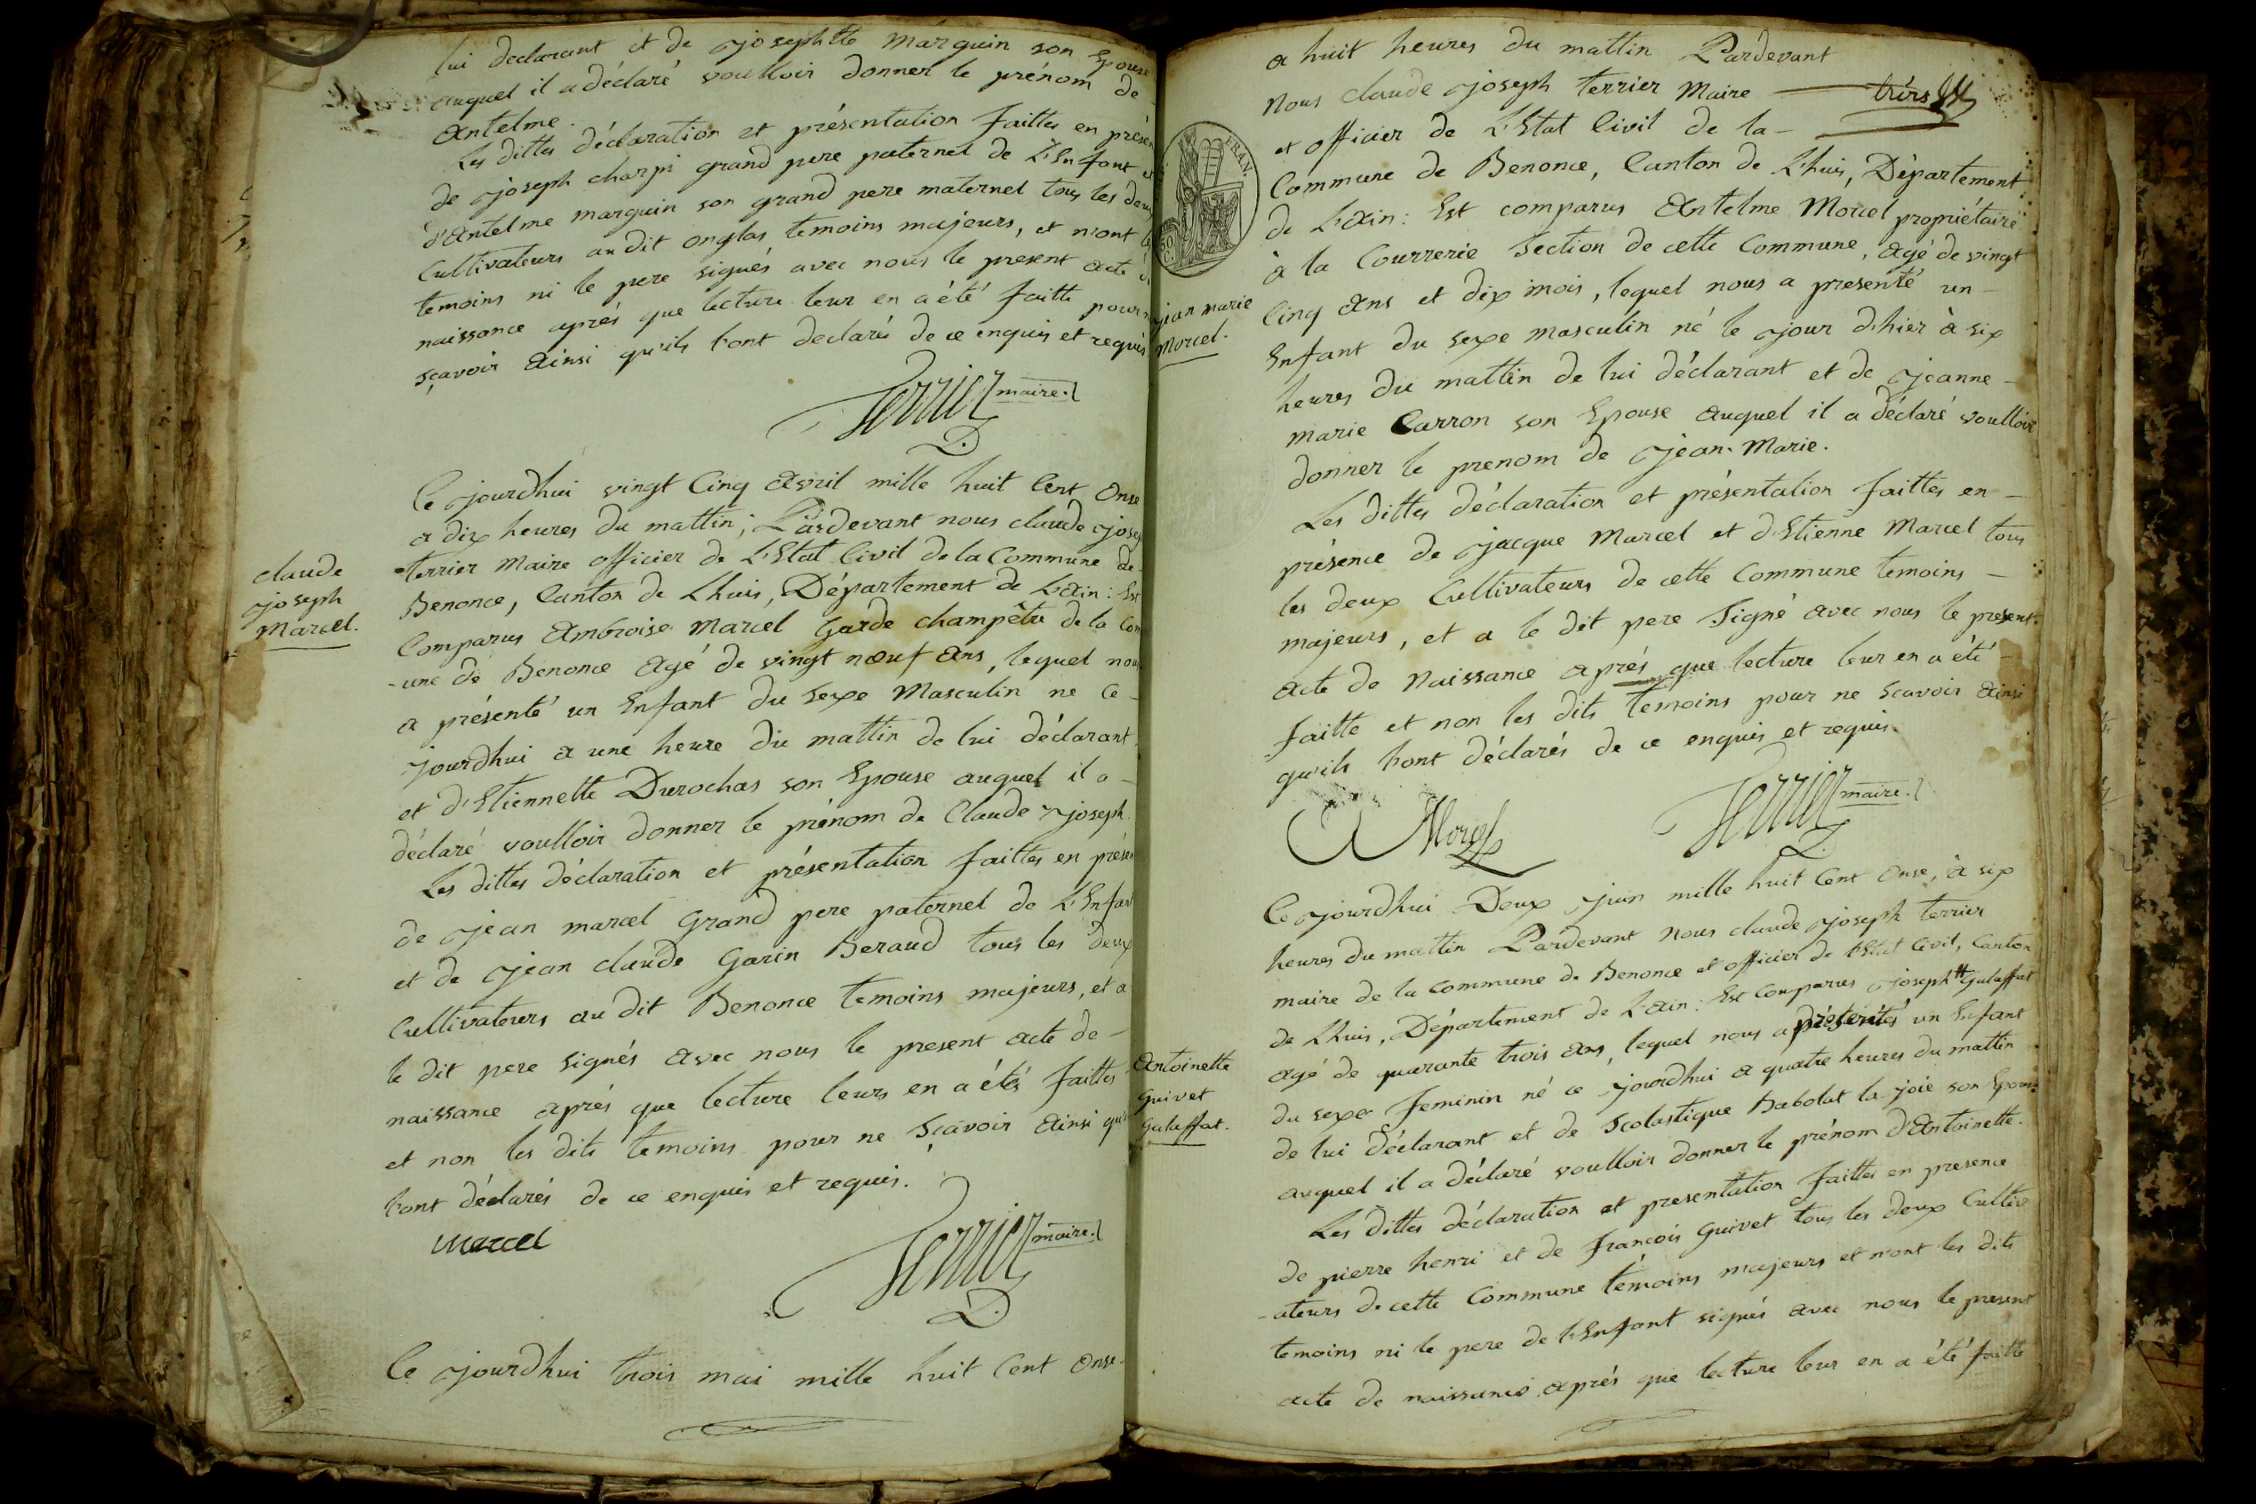 lui declarant et de josephtte marguin son Epouse
auquel il a déclaré voulloir donner le prénom de
antelme.
Les dittes déclaration et présentation faittes en présen
de joseph charpi grand pere paternel de L'Enfant et
d'antelme marguin son grand pere maternel tous les deux
Cultivateurs au dit onglas temoins majeurs, et n'ont les
temoins ni le pere signés avec nous le present acte de
naissance après que lecture leur en a été faitte pour ne
sçavoir ainsi qu'ils l'ont declaré de ce enquis et requis
Terrier maire.
claude
joseph
Marcel.
Ce jourdhui vingt Cinq avril mille huit Cent Onse
a dix heures du mattin; Pardevant nous claude josep
terrier Maire officier de L'Etat Civil de la Commune de
Benonce, Canton de Lhuis, Département de L'ain: Est
Comparus Ambroise Marcel Garde champêtre de la Com
-une de Benonce agé de vingt noeuf ans, lequel nous
a présenté un Enfant du Sexe Masculin ne ce
jourdhui a une heure du mattin de lui déclarant
et d'Etiennette Durochas son Epouse auquel il a
déclaré voulloir donner le prénom de Claude joseph.
Les dittes déclaration et présentation faittes en présen
de jean marcel Grand pere paternel de L'Enfan
et de jean claude Garin Beraud tous les deux
Cultivateurs au dit Benonce temoins majeurs, et a
le dit pere signés avec nous le present acte de
naissance après que lecture leurs en a étés faittes
et non les dits temoins pour ne Sçavoir ainsi qu'il
l'ont déclarés de ce enquis et requis.
Marcel
Terrier maire.
Ce jourdhui trois mai mille huit Cent Onse
a huit heures du mattin Pardevant
Nous claude joseph terrier Maire
et officier de L'Etat Civil de la
FRAN.
Commune de Benonce, Canton de Lhuis, Département
de L'ain: Est comparus Antelme Morcel propriétaire
à la Courrerie Section de cette Commune, agé de vingt
jean marie
Morcel.
Cinq ans et dix mois, lequel nous a presenté un
Enfant du sexe masculin né le jour d'hier à six
heures du mattin de lui déclarant et de jeanne
marie Carron son Epouse auquel il a déclaré voulloir
donner le prenom de jean-Marie.
Les dittes déclaration et présentation faittes en
présence de jacque Marcel et d'Etienne Marcel tous
les deux Cultivateurs de cette Commune temoins
majeurs, et a le dit pere Signé avec nous le present
acte de Naissance après que lecture leur en a été
faitte et non les dits temoins pour ne Sçavoir ainsi
qu'ils l'ont déclarés de ce enquis et requis.
Morcel
Terrier maire.
Ce jourdhui Deux juin mille huit Cent Onse, à six
heures du mattin Pardevant Nous claude joseph terrier
maire de la Commune de Benonce et officier de l'Etat Civil, Canton
de Lhuis, Département de L'ain: Est Comparus joseph Gulaffat
agé de quarante trois ans, lequel nous a présenté un Enfant
Antoinette
Guivet
Gulaffat.
du sexe feminin né ce jourdhui a quatre heures du mattin
de lui déclarant et de Scolastique Babolat la joie son Epouse
auquel il a déclaré voulloir donner le prénom d'Antoinette.
Les dittes déclaration et presentation faittes en presence
de pierre henri et de françois Guivet tous les deux Cultiv
-ateurs de cette Commune témoins majeurs et n'ont les dits
temoins ni le pere de l'Enfant signés avec nous le present
acte de naissance après que lecture leur en a été faitte